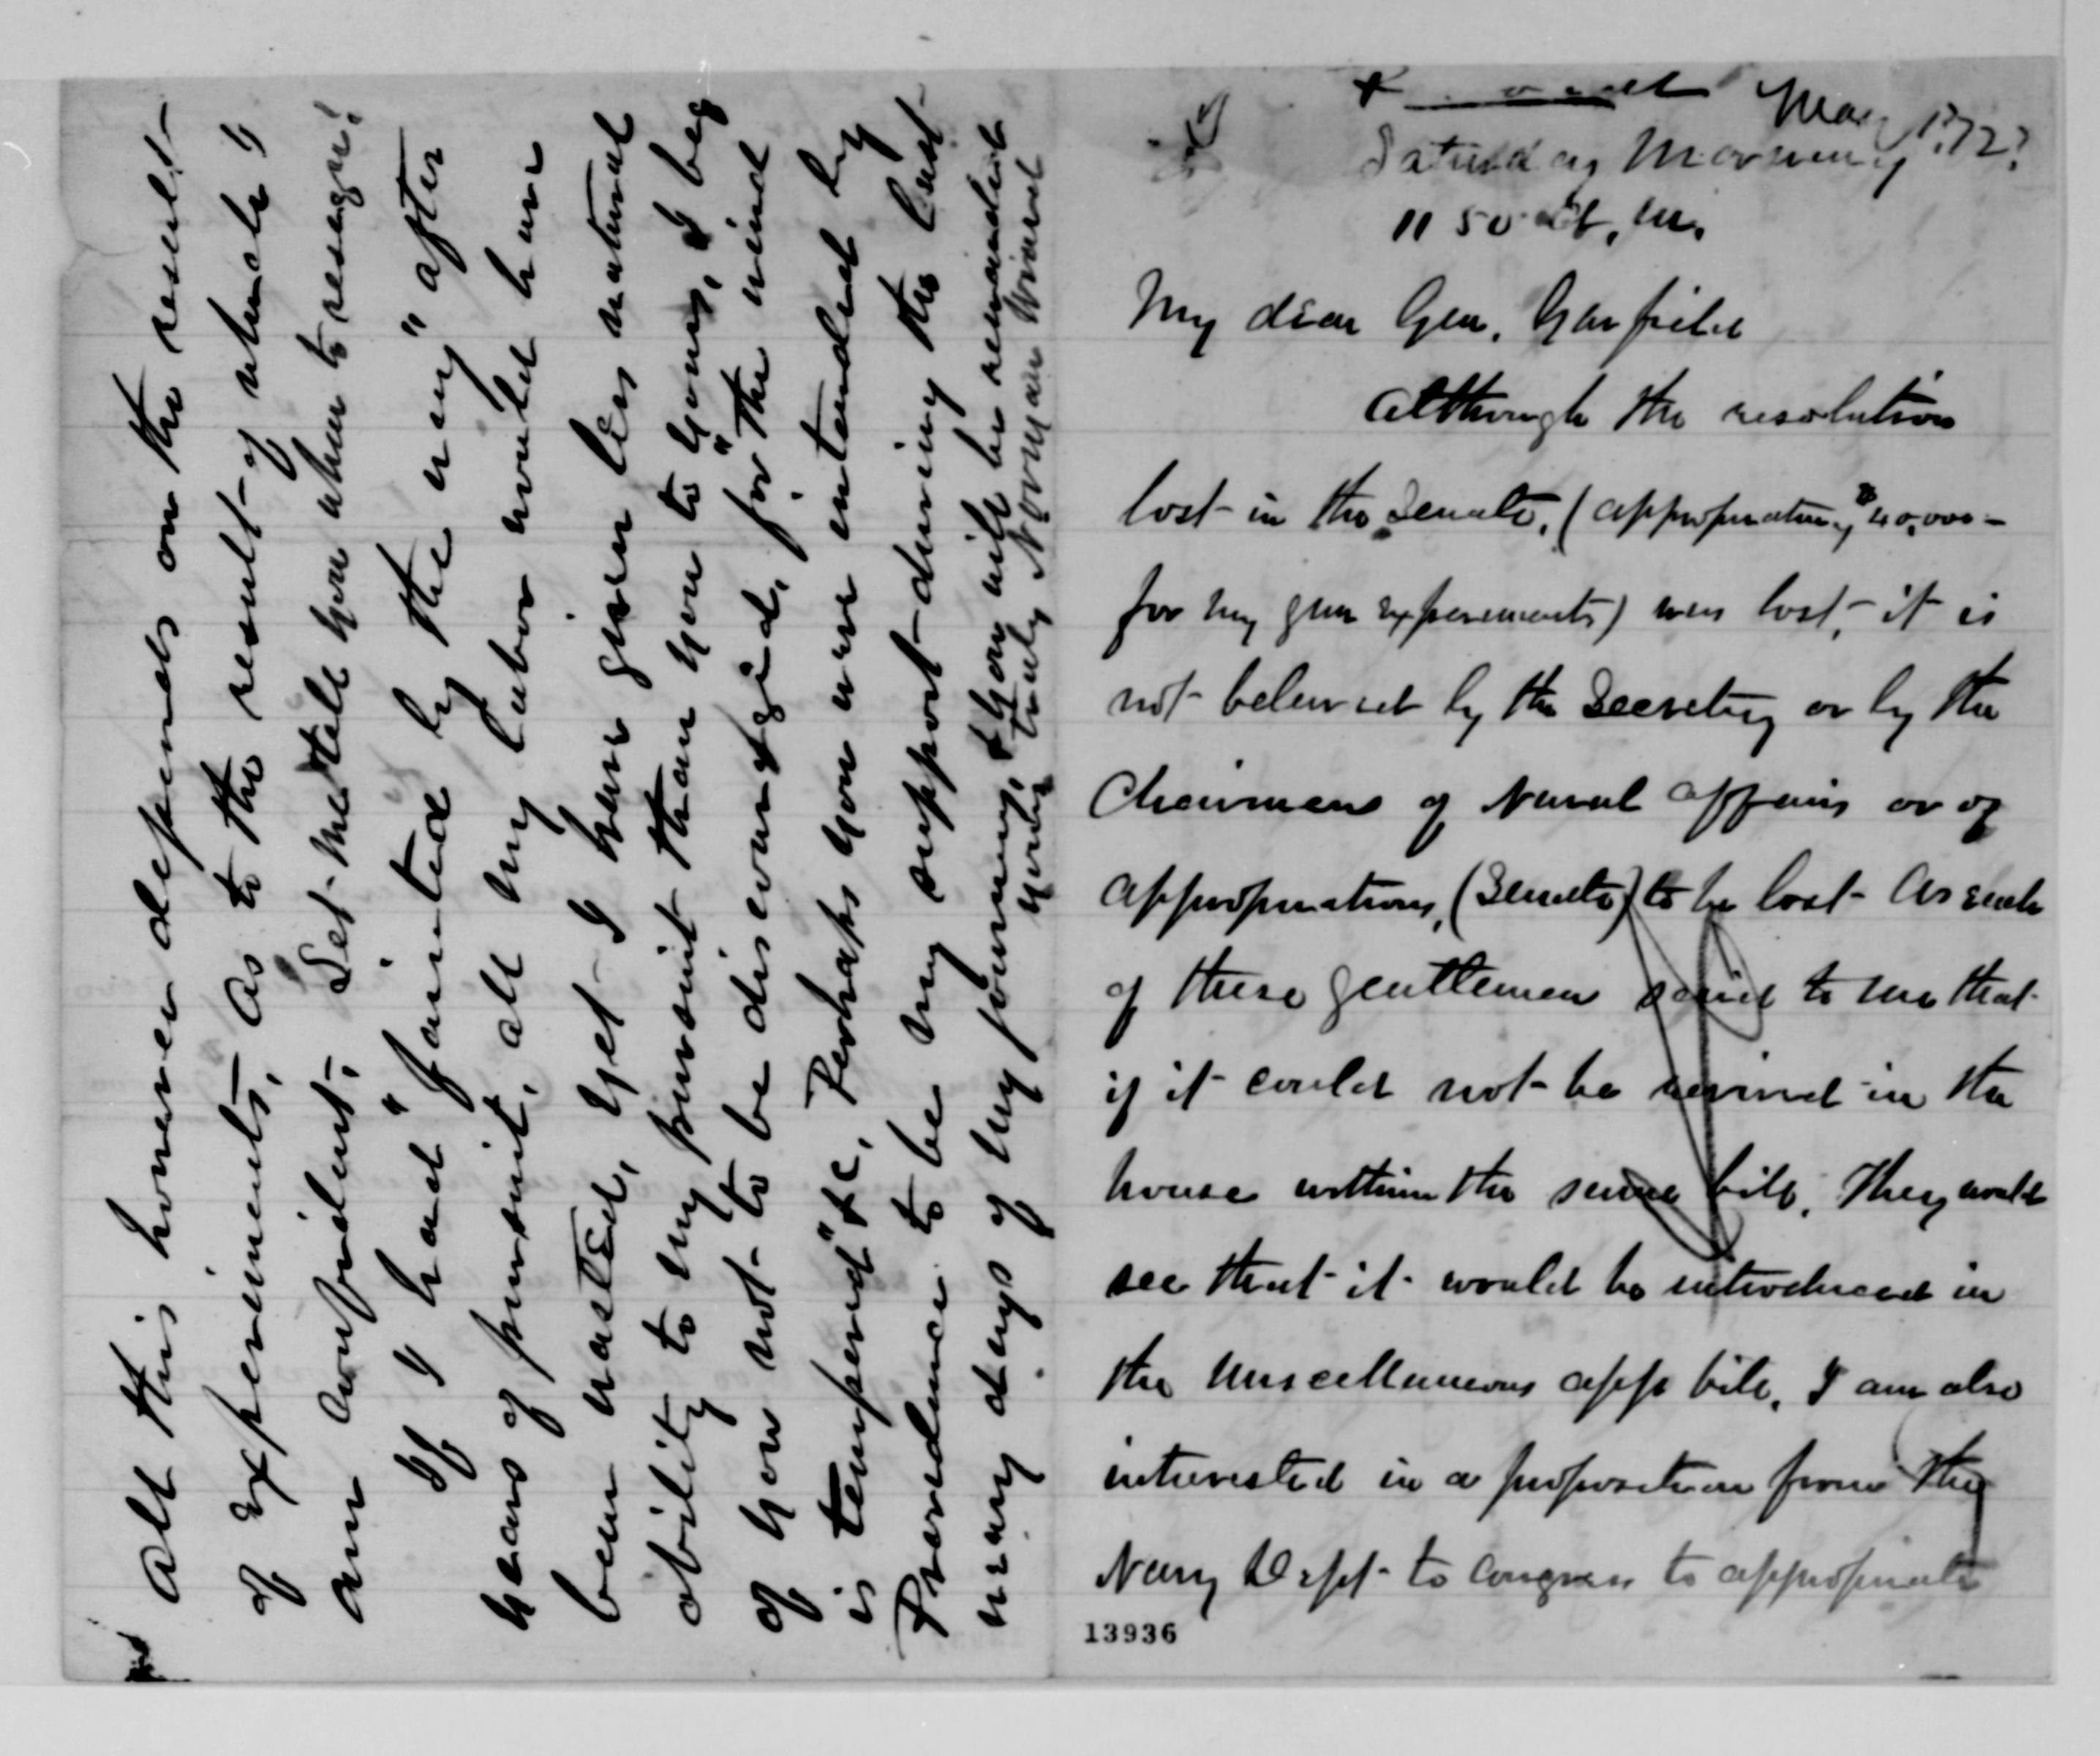 May 1872?
Saturday Morning
11 50 A, M.
My dear Gen. Garfield
Although the resolution
lost in the Senate, (appropriating $40,000 -
for my gun experements) was lost, it is
not beleived by the Secretary or by the
Chairmen of Naval Affairs or of
Appropriations, (Senate) to be lost - As each
of these gentlemen said to me that
if it could not be revived in the
house within the same bill, they would
see that it would be introduced in
the Miscellaneous app bill. I am also
interested in a proposition from the
Navy Dept to Congress to appropriate
13936
All this however depends on the result
of experiments, as to the result of which I
am confident. Let me tell you when to resign!
If I had "fainted by the way" after
years of pursuit, all my labor would have
been wasted, Yet I have given less natural
ability to my pursuit than you to yours, & I beg
of you not to be discouraged, for "the wind
is tempered" &c, Perhaps you were intended by
Providence to be my support during the last
weary days of my journey, & you will be rewarded
Yours truly Norman Wiard